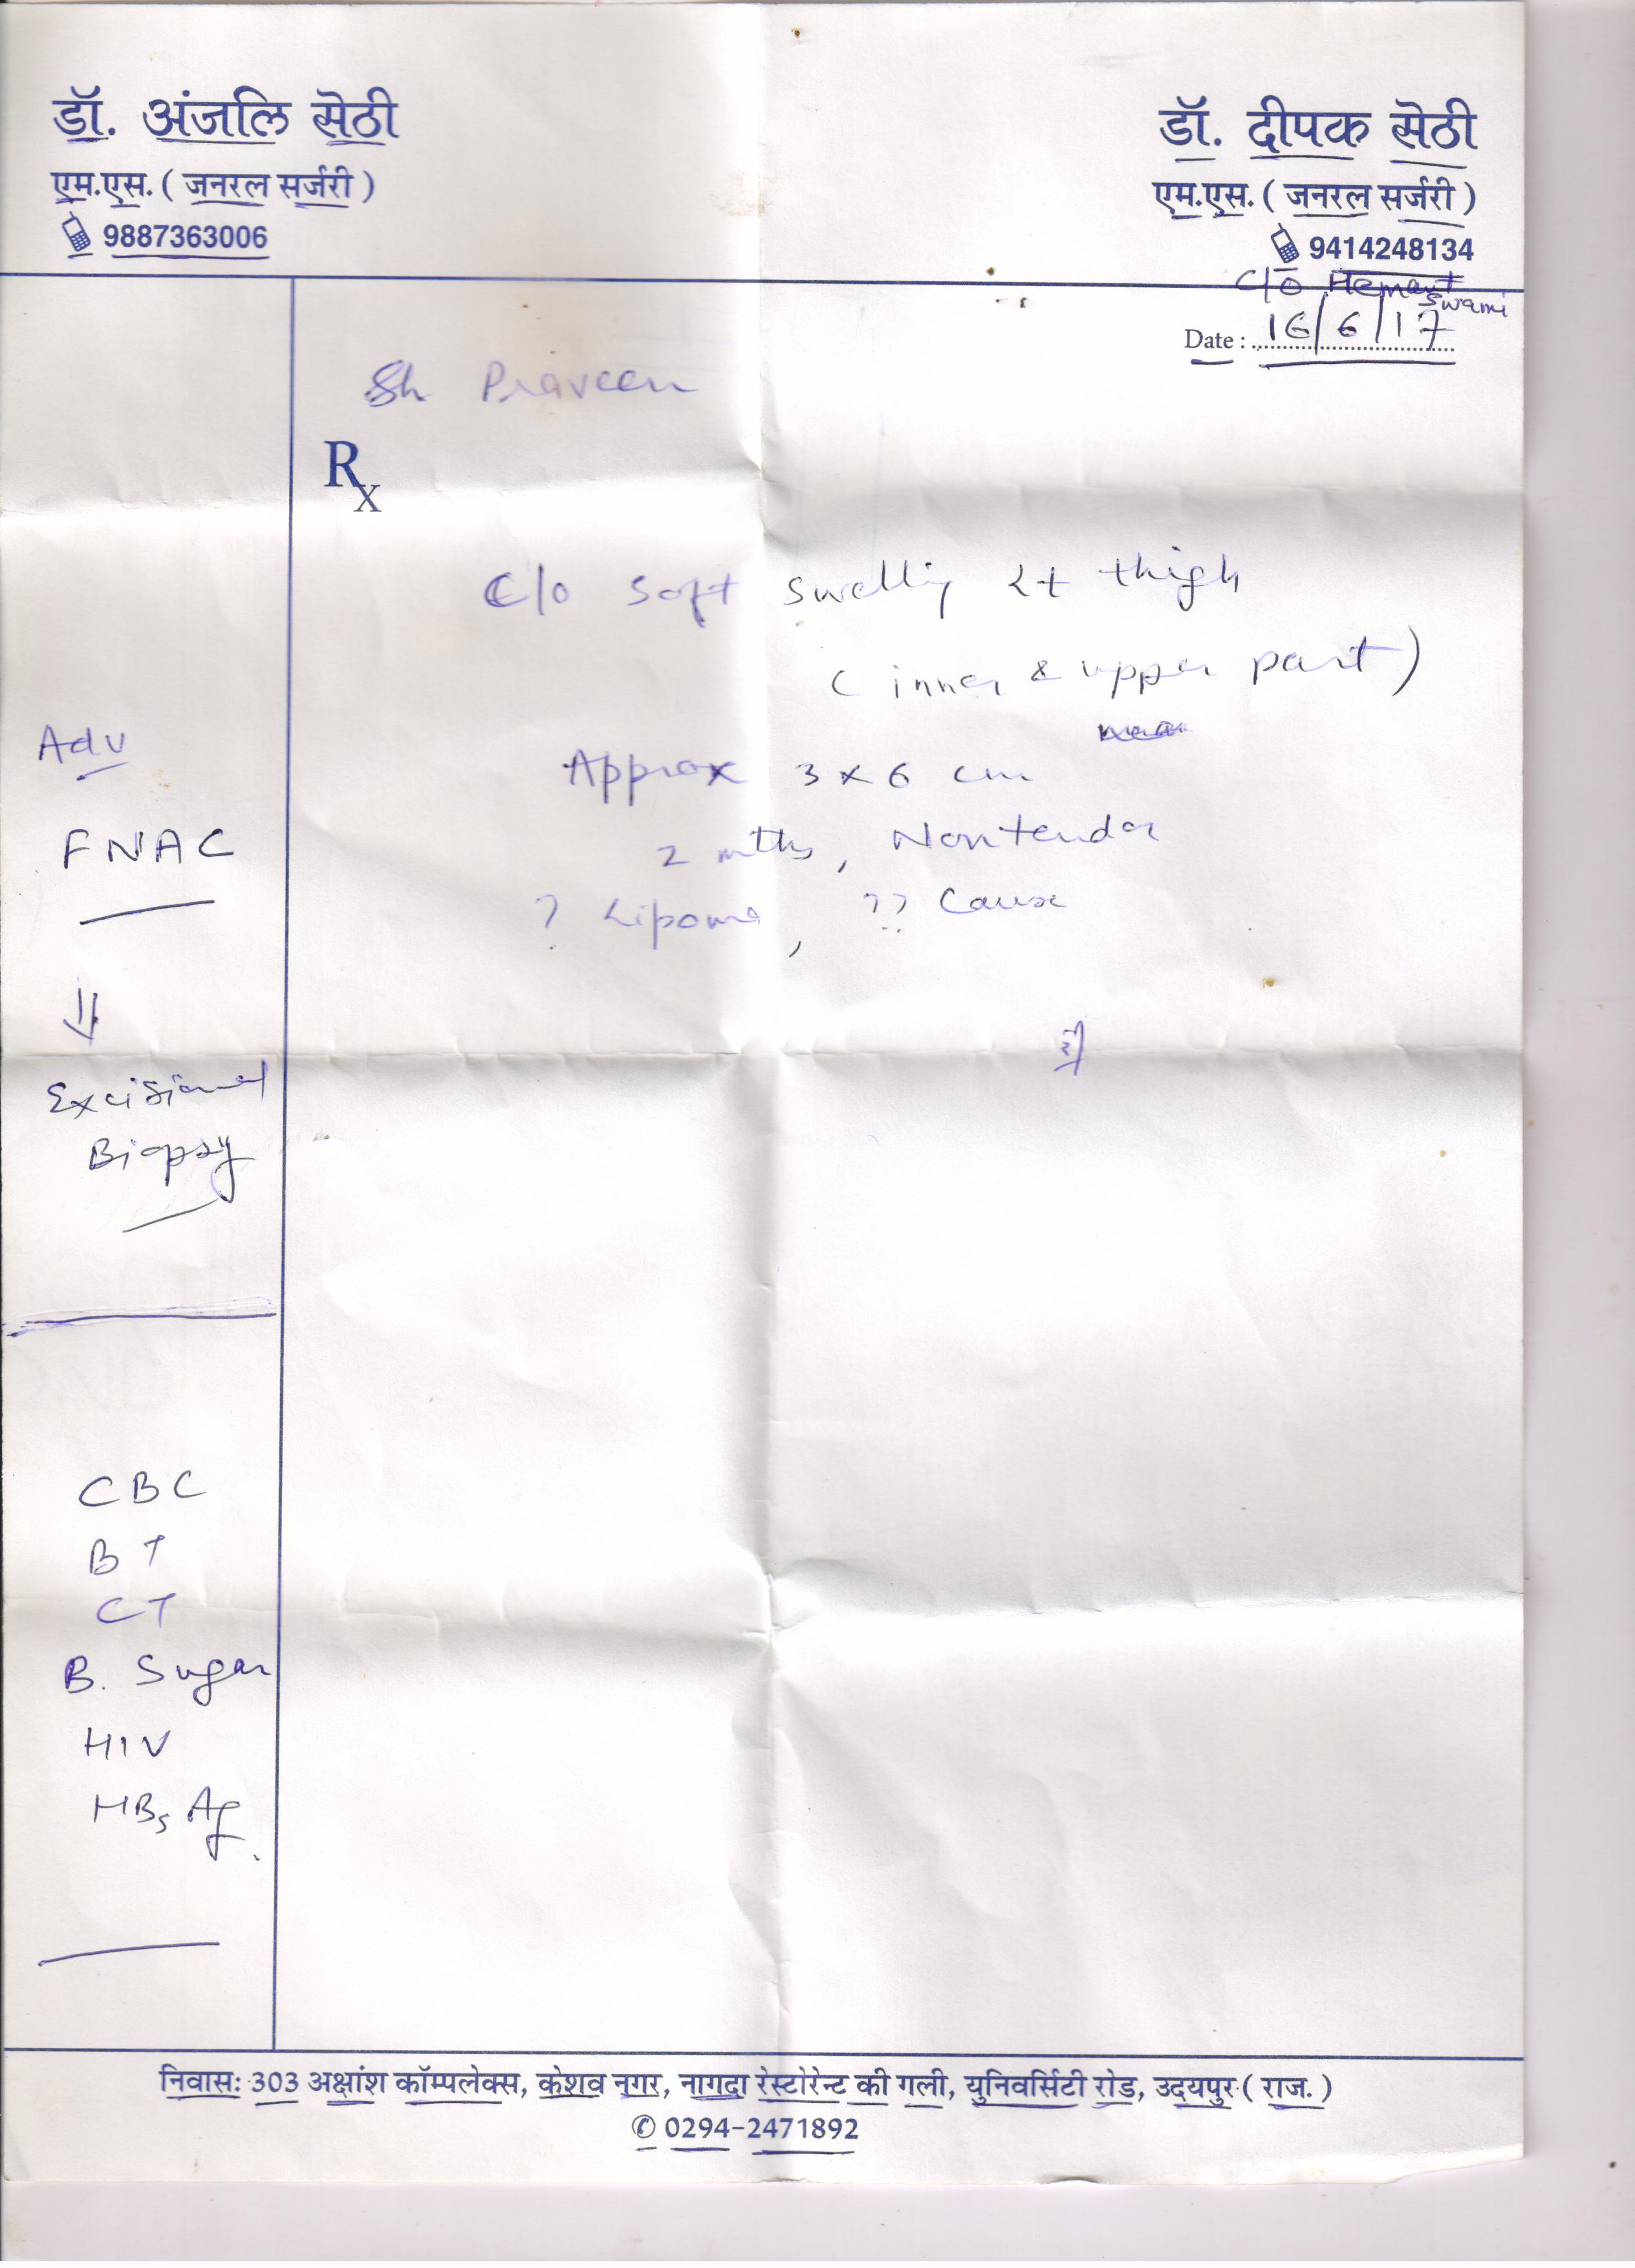 डॉ. अंजलि सेठी
एम.एस. ( जनरल सर्जरी )
9887363006
डॉ. दीपक सेठी
एम.एस. ( जनरल सर्जरी )
9414248134
C/o Hemant
Swami
Date : 16/6/17
Sh Praveen
Rx
C/o Soft swelling Lt thigh
( inner & upper part )
Approx 3 x 6 cm
2 mths, Nontender
? Lipoma, ?? Cause
Adv
FNAC
⇓
Excisional
Biopsy
CBC
BT
CT
B. Sugar
HIV
HBsAg.
निवास: 303 अक्षांश कॉम्पलेक्स, केशव नगर, नागदा रेस्टोरेन्ट की गली, युनिवर्सिटी रोड, उदयपुर ( राज. )
✆ 0294-2471892